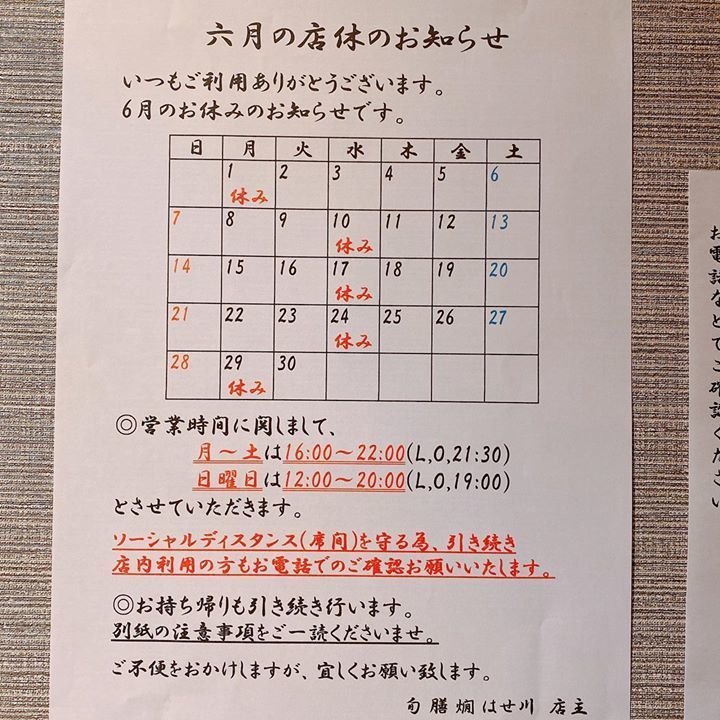 六月の店休のお知らせ
いつもご利用ありがとうございます。
6月のお休みのお知らせです。
日 月 火 水 木 金 土
1 2 3 4 5 6
休み
7 8 9 10 11 12 13
休み
14 15 16 17 18 19 20
休み
21 22 23 24 25 26 27
休み
28 29 30
休み
◎営業時間に関しまして、
月～土は16:00～22:00(L,O,21:30)
日曜日は12:00～20:00(L,O,19:00)
とさせていただきます。
ソーシャルディスタンス(席間)を守る為、引き続き
店内利用の方もお電話でのご確認お願いいたします。
◎お持ち帰りも引き続き行います。
別紙の注意事項をご一読くださいませ。
ご不便をおかけしますが、宜しくお願い致します。
旬膳燗はせ川 店主
お電話などでご確認ください